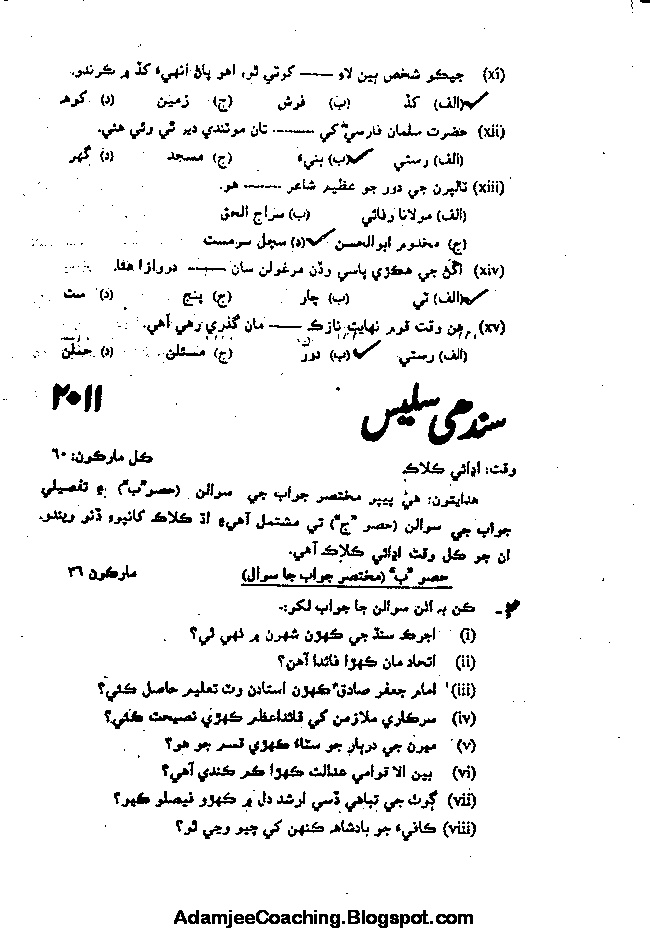 (xi) جيڪو شخص ٻين لاءِ ــــــ کوٽي ٿو، اهو پاڻ انهيءَ کڏ ۾ ڪرندو.
(الف) کڏ (ب) فرش (ج) زمين (د) کوهه
(xii) حضرت سلمان فارسيؓ کي ــــــ تان موٽندي دير ٿي وئي هئي.
(الف) رستي (ب) ٻنيءَ (ج) مسجد (د) گهر
(xiii) ٽالپرن جي دور جو عظيم شاعر ــــــ هو.
(الف) مولانا وفائي (ب) سراج الحق
(ج) مخدوم ابوالحسن (د) سچل سرمست
(xiv) اڱڻ جي هڪڙي پاسي وڏن مرغولن سان ــــــ دروازا هئا.
(الف) ٽي (ب) چار (ج) پنج (د) ست
(xv) هن وقت قوم نهايت نازڪ ــــــ مان گذري رهي آهي.
(الف) رستي (ب) دور (ج) مسئلن (د)
سنڌي سليس ٢٠١١
وقت: اڍائي ڪلاڪ ڪل مارڪون: ٦٠
هدايتون: هيءُ پيپر مختصر جواب جي سوالن (حصو "ب") ۽ تفصيلي
جواب جي سوالن (حصو "ج") تي مشتمل آهي ۽ اڌ ڪلاڪ کانپوءِ ڏنو ويندو.
ان جو ڪل وقت اڍائي ڪلاڪ آهي.
حصو "ب" (مختصر جواب جا سوال) مارڪون ٣٦
٢ـ ڪن به اٺن سوالن جا جواب لکو:-
(i) اجرڪ سنڌ جي ڪهڙن شهرن ۾ ٺهي ٿي؟
(ii) اتحاد مان ڪهڙا فائدا آهن؟
(iii) امام جعفر صادقؑ ڪهڙن استادن وٽ تعليم حاصل ڪئي؟
(iv) سرڪاري ملازمن کي قائداعظم ڪهڙي نصيحت ڪئي؟
(v) ميرن جي درٻار جو سٽاءُ ڪهڙي قسم جو هو؟
(vi) بين الاقوامي عدالت ڪهڙا ڪم ڪندي آهي؟
(vii) ڳوٺ جي تباهي ڏسي ارشد دل ۾ ڪهڙو فيصلو ڪيو؟
(viii) ڪافيءَ جو بادشاهه ڪنهن کي چيو وڃي ٿو؟
AdamjeeCoaching.Blogspot.com